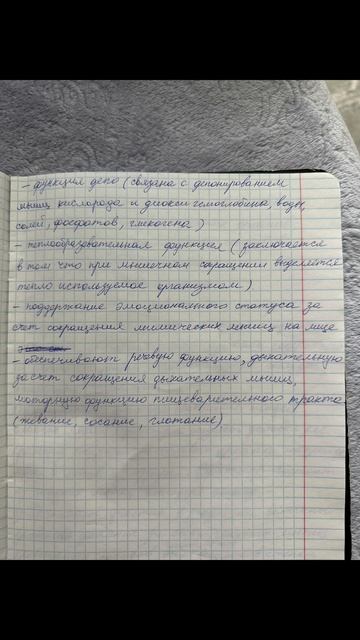 - функция депо (связана с депонированием
мышц кислорода и диоксигемоглобина, воды,
солей, фосфатов, гликогена)
- теплообразовательная функция (заключается
в том что при мышечном сокращении выделяется
тепло используемое организмом)
- поддержание эмоционального статуса за
счет сокращения мимических мышц на лице
- обеспечивают речевую функцию, дыхательную
за счет сокращения дыхательных мышц,
моторную функцию пищеварительного тракта
(жевание, сосание, глотание)